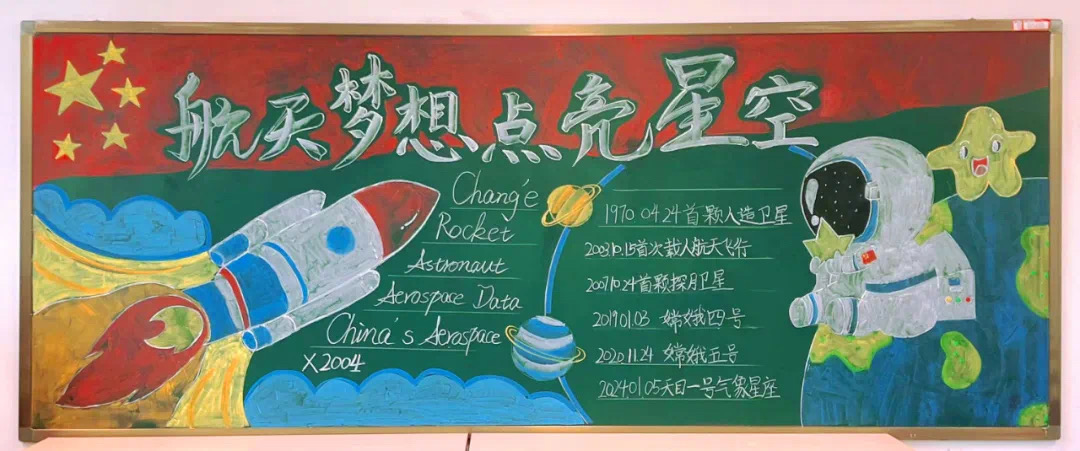 航天梦想点亮星空
Chang'e
Rocket
Astronaut
Aerospace Data
China's Aerospace
X2004
1970 04 24 首颗人造卫星
2003.10.15首次载人航天飞行
2007.10 24首颗探月卫星
201901.03 嫦娥四号
2020.11.24 嫦娥五号
202401.05天目一号气象星座